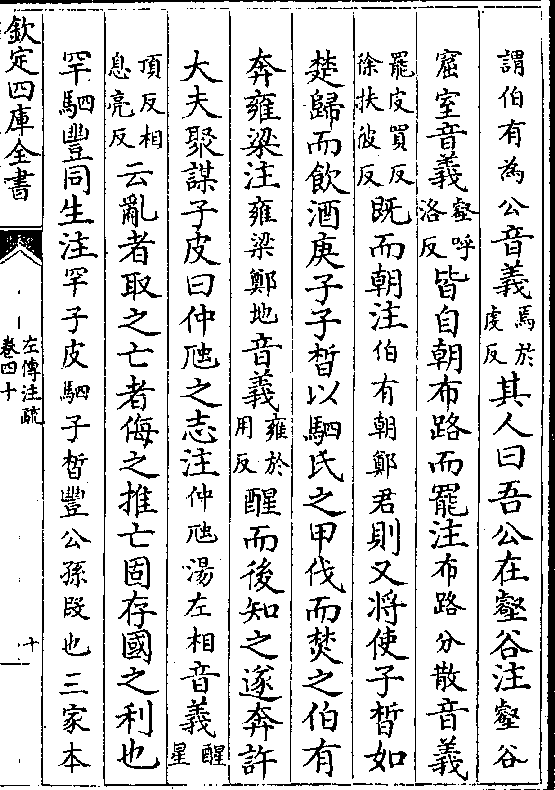 謂伯有為公音義焉於虔反其人曰吾公在壑谷注壑谷
窟室音義壑呼洛反皆自朝布路而罷注布路分散音義
罷皮買反徐扶彼反既而朝注伯有朝鄭君則又將使子晳如
楚歸而飲酒庚子子晳以駟氏之甲伐而焚之伯有
奔雍梁注雍梁鄭地音義雍於用反醒而後知之遂奔許
大夫聚謀子皮曰仲虺之志注仲虺湯左相音義醒星
頂反相息亮反云亂者取之亡者侮之推亡固存國之利也
罕駟豐同生注罕子皮駟子晳豐公孫段也三家本
欽定四庫全書
左傳注疏
卷四十
十